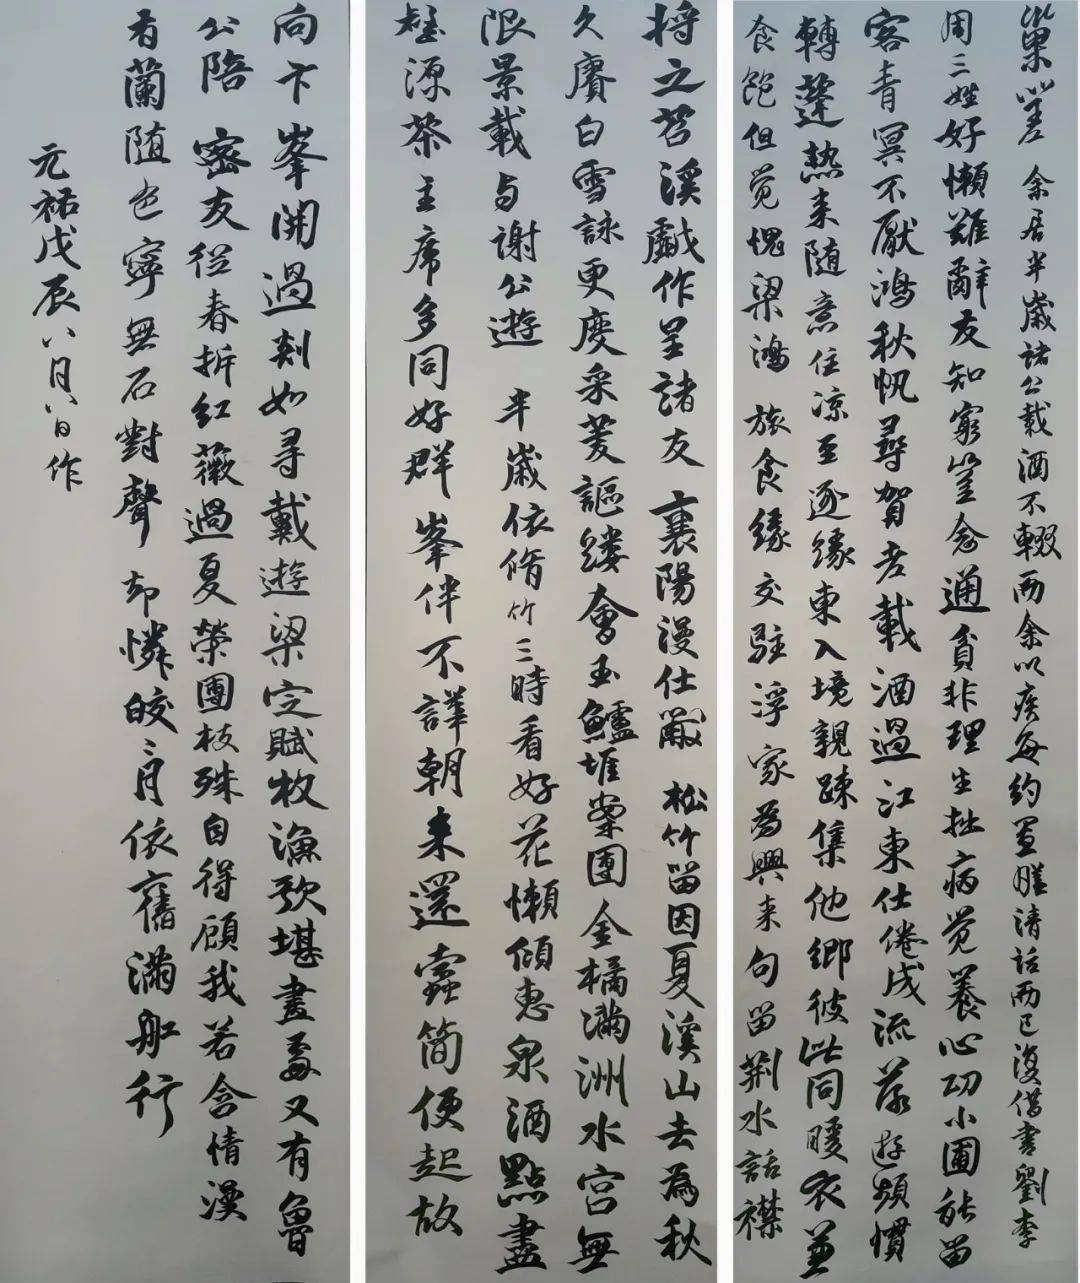 巢嗟 余居半歲諸公載酒不輟而余以疾每約置膳清話而已復借書劉李
周三姓好懶難辭友知窮豈念通貧非理生拙病覺養心功小圃能留
客青冥不厭鴻秋帆尋賀老載酒過江東仕倦成流落遊頻慣
轉蓬熱來随意住凉至逐緣東入境親踈集他鄉彼此同暖衣兼
食飽但覺愧梁鴻 旅食緣交駐浮家為興来句留荆水話襟
將之苕溪戲作呈諸友 襄陽漫仕黻 松竹留因夏溪山去為秋
久賡白雪詠更度采菱謳縷會玉鱸堆案團金橘滿洲水宮無
限景載与謝公遊 半歲依脩竹三時看好花懶傾惠泉酒點盡
壑源茶主席多同好群峯伴不譁朝来還蠹簡便起故
向卞峯開過剡如尋戴遊梁定賦枚漁歌堪畫處又有魯
公陪 密友從春拆紅薇過夏榮團枝殊自得顧我若含情漫
有蘭随色寧無石對聲却憐皎々月依舊滿船行
元祐戊辰八月八日作